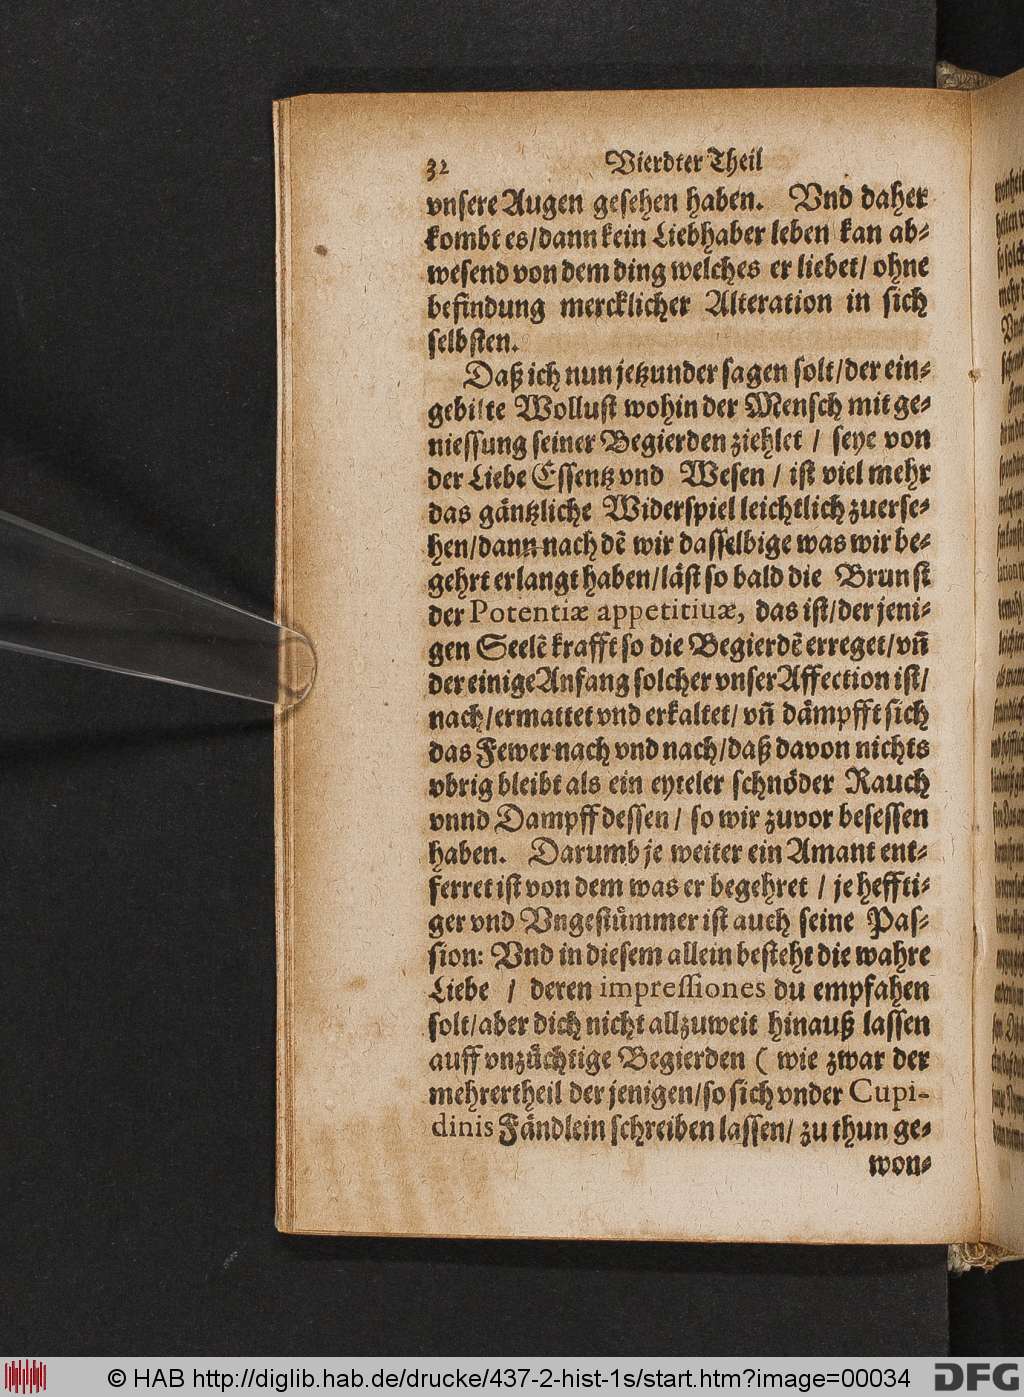 32 Vierdter Theil
vnsere Augen gesehen haben. Vnd daher
kombt es/dann kein Liebhaber leben kan ab-
wesend von dem ding welches er liebet/ ohne
befindung mercklicher Alteration in sich
selbsten.
Daß ich nun jetzunder sagen solt/der ein-
gebilte Wollust wohin der Mensch mit ge-
niessung seiner Begierden ziehlet / seye von
der Liebe Essentz vnd Wesen / ist viel mehr
das gäntzliche Widerspiel leichtlich zuerse-
hen/dann nach dē wir dasselbige was wir be-
gehrt erlangt haben/läst so bald die Brunst
der Potentiæ appetitiuæ, das ist/der jeni-
gen Seelē krafft so die Begierdē erreget/vn̄
der einige Anfang solcher vnser Affection ist/
nach/ermattet vnd erkaltet/ vn̄ dämpfft sich
das Fewer nach vnd nach/daß davon nichts
vbrig bleibt als ein eyteler schnöder Rauch
vnnd Dampff dessen / so wir zuvor besessen
haben. Darumb je weiter ein Amant ent-
ferret ist von dem was er begehret / je heffti-
ger vnd Vngestümmer ist auch seine Pas-
sion: Vnd in diesem allein besteht die wahre
Liebe / deren impressiones du empfahen
solt/aber dich nicht allzuweit hinauß lassen
auff vnzüchtige Begierden ( wie zwar der
mehrertheil der jenigen/so sich vnder Cupi-
dinis Fändlein schreiben lassen/ zu thun ge-
won-
© HAB http://diglib.hab.de/drucke/437-2-hist-1s/start.htm?image=00034
DFG